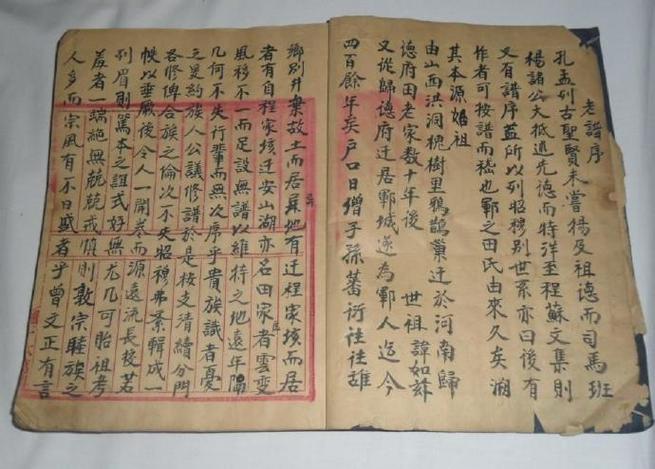 老譜序
孔孟列古聖賢未嘗揚及祖德而司馬班
楊諸公大抵追先德而特詳至程蘇文集則
又有譜序蓋所以列昭穆別世系亦曰後有
作者可按譜而稽也鄆之田氏由來久矣溯
其本源始祖
由山西洪洞槐樹里鴉鵲巢迁於河南歸
德府田老家数十年後 世祖諱如兹
又從歸德府迁居鄆城遂為鄆人迄今
四百餘年矣户口日增子孫蕃衍往往離
鄉別井棄故土而居某地有迁程家垓而居
者有自程家垓迁安山湖亦名田家庄者雲变
風移不一而足設無譜以維持之地遠年
几何不失行輩而無次序乎貴族識者憂
之爰約族人公議修譜於是按支清續分門
各修俾合族之倫次不失昭穆弗紊輯成一
帙以垂厥後令人一開卷而源遠流長校若
列眉則篤本之誼式好無尤几可胎祖考
羞者一端絶無兢兢戒慎則敦宗睦族之
人多而宗風有不日盛者乎曾文正有言